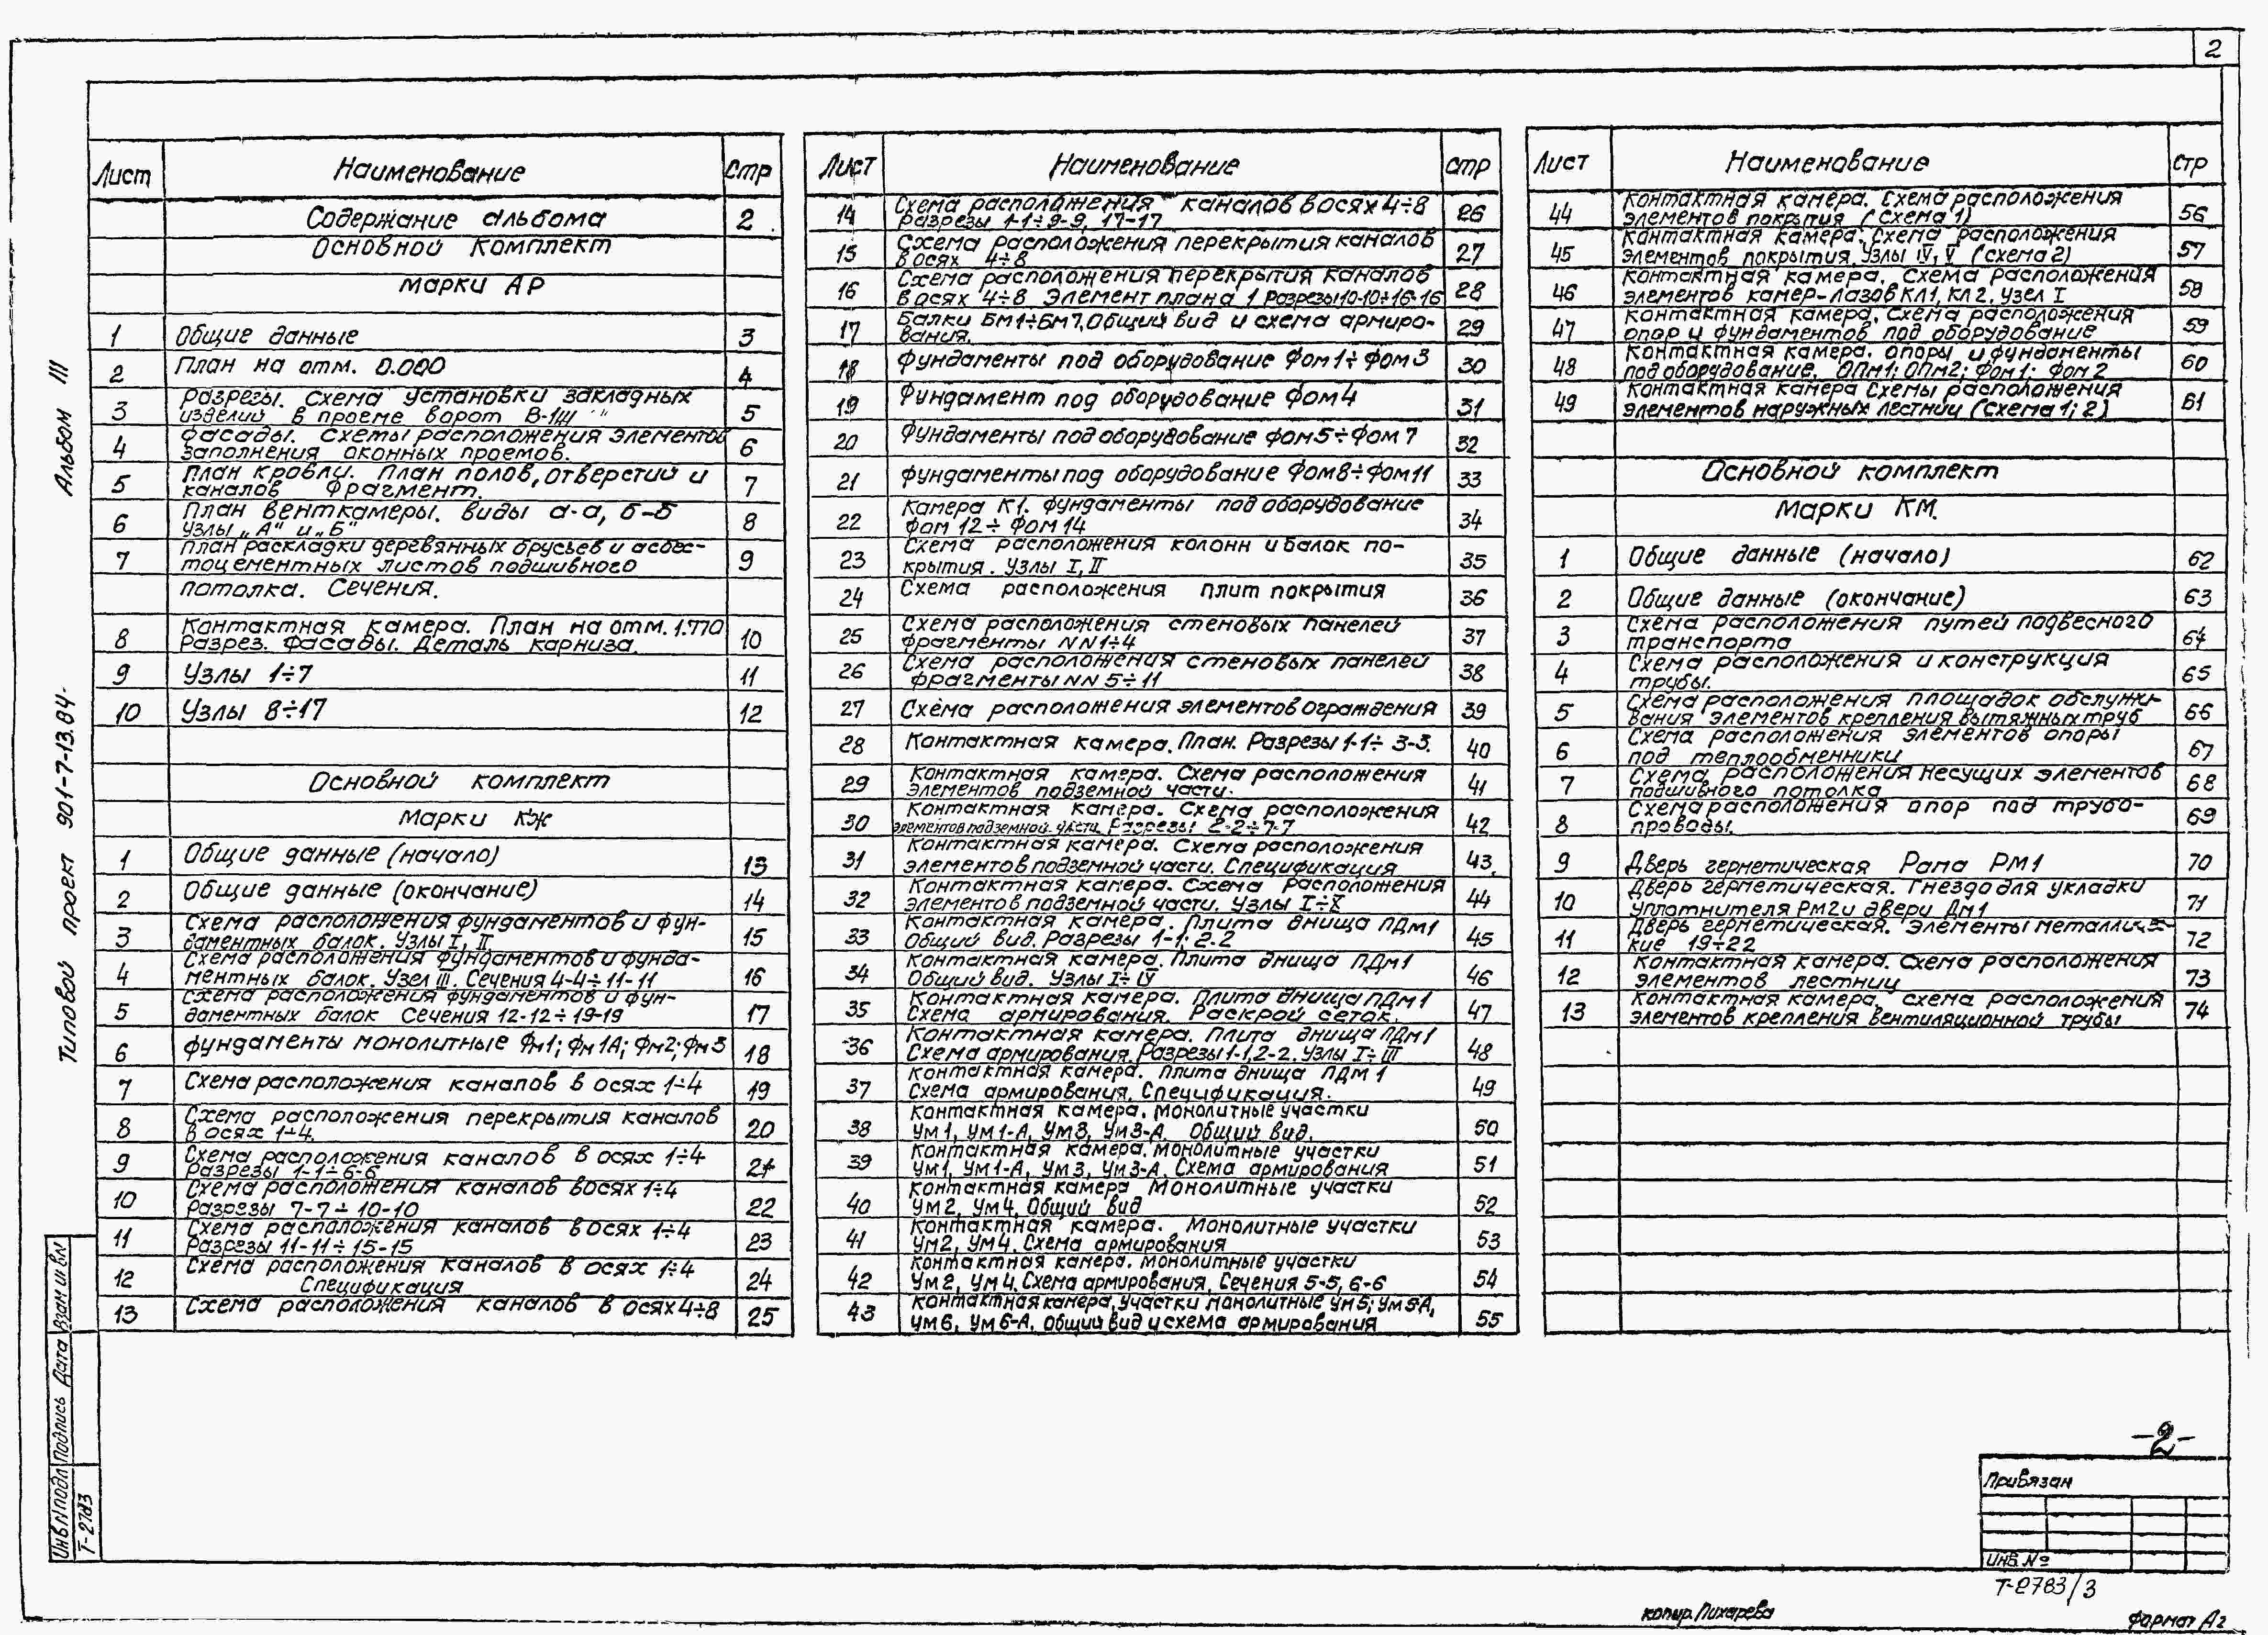 2
Лист Наименование Стр
Содержание альбома 2
Основной комплект
марки АР
1 Общие данные 3
2 План на отм. 0.000 4
3 Разрезы. Схема установки закладных 5
изделий в проеме ворот В-1
4 Фасады. Схемы расположения элементов 6
заполнения оконных проемов.
5 План кровли. План полов, отверстий и 7
каналов Фрагмент.
6 План венткамеры. Виды а-а, б-б 8
Узлы „А" и „Б"
7 План раскладки деревянных брусьев и асбес- 9
тоцементных листов подшивного
потолка. Сечения.
8 Контактная камера. План на отм. 1.770 10
Разрез. Фасады. Деталь карниза.
9 Узлы 1÷7 11
10 Узлы 8÷17 12
Основной комплект
Марки КЖ
1 Общие данные (начало) 13
2 Общие данные (окончание) 14
3 Схема расположения фундаментов и фун- 15
даментных балок. Узлы I, II
4 Схема расположения фундаментов и фунда- 16
ментных балок. Узел III. Сечения 4-4÷11-11
5 Схема расположения фундаментов и фун- 17
даментных балок Сечения 12-12÷19-19
6 Фундаменты монолитные Фм1; Фм1А; Фм2; Фм3 18
7 Схема расположения каналов в осях 1÷4 19
8 Схема расположения перекрытия каналов 20
в осях 1÷4.
9 Схема расположения каналов в осях 1÷4 21
Разрезы 1-1÷6-6
10 Схема расположения каналов в осях 1÷4 22
Разрезы 7-7÷10-10
11 Схема расположения каналов в осях 1÷4 23
Разрезы 11-11÷15-15
12 Схема расположения каналов в осях 1÷4 24
Спецификация
13 Схема расположения каналов в осях 4÷8 25
Лист Наименование стр
14 Схема расположения каналов в осях 4÷8 26
Разрезы 1-1÷9-9, 17-17
15 Схема расположения перекрытия каналов 27
в осях 4÷8
16 Схема расположения перекрытия каналов 28
в осях 4÷8 Элемент плана 1 Разрезы 10-10÷16-16
17 Балки Бм1÷Бм7, Общий вид и схема армиро- 29
вания.
18 Фундаменты под оборудование Фом1÷Фом3 30
19 Фундамент под оборудование Фом4 31
20 Фундаменты под оборудование Фом5÷Фом7 32
21 Фундаменты под оборудование Фом8÷Фом11 33
22 Камера К1. Фундаменты под оборудование 34
Фом12÷Фом14
23 Схема расположения колонн и балок по- 35
крытия. Узлы I, II
24 Схема расположения плит покрытия 36
25 Схема расположения стеновых панелей 37
Фрагменты NN1÷4
26 Схема расположения стеновых панелей 38
Фрагменты NN 5÷11
27 Схема расположения элементов ограждения 39
28 Контактная камера. План. Разрезы 1-1÷3-3. 40
29 Контактная камера. Схема расположения 41
элементов подземной части.
30 Контактная камера. Схема расположения 42
элементов подземной части. Разрезы 2-2÷7-7
31 Контактная камера. Схема расположения 43
элементов подземной части. Спецификация
32 Контактная камера. Схема расположения 44
элементов подземной части. Узлы I÷X
33 Контактная камера. Плита днища ПДм1 45
Общий вид. Разрезы 1-1; 2-2
34 Контактная камера. Плита днища ПДм1 46
Общий вид. Узлы I÷IV
35 Контактная камера. Плита днища ПДм1 47
Схема армирования. Раскрой сеток.
36 Контактная камера. Плита днища ПДм1 48
Схема армирования. Разрезы 1-1, 2-2. Узлы I÷III
37 Контактная камера. Плита днища ПДм1 49
Схема армирования. Спецификация.
38 Контактная камера. Монолитные участки 50
Ум1, Ум1-А, Ум3, Ум3-А. Общий вид.
39 Контактная камера. Монолитные участки 51
Ум1, Ум1-А, Ум3, Ум3-А. Схема армирования
40 Контактная камера Монолитные участки 52
Ум2, Ум4. Общий вид
41 Контактная камера. Монолитные участки 53
Ум2, Ум4. Схема армирования
42 Контактная камера. Монолитные участки 54
Ум2, Ум4. Схема армирования, Сечения 5-5, 6-6
43 Контактная камера, участки монолитные Ум5; Ум5-А, 55
Ум6, Ум6-А, общий вид и схема армирования
Лист Наименование стр
44 Контактная камера. Схема расположения 56
элементов покрытия (схема 1)
45 Контактная камера. Схема расположения 57
элементов покрытия. Узлы IV, V (схема 2)
46 Контактная камера. Схема расположения 58
элементов камер-лазов КЛ1, КЛ2. Узел I
47 Контактная камера. Схема расположения 59
опор и фундаментов под оборудование
48 Контактная камера. опоры и фундаменты 60
под оборудование. ОПм1; ОПм2; Фом1; Фом2
49 Контактная камера Схемы расположения 61
элементов наружных лестниц (схема 1; 2)
Основной комплект
Марки КМ.
1 Общие данные (начало) 62
2 Общие данные (окончание) 63
3 Схема расположения путей подвесного 64
транспорта
4 Схема расположения и конструкция 65
трубы.
5 Схема расположения площадок обслужи- 66
вания элементов крепления вытяжных труб
6 Схема расположения элементов опоры 67
под теплообменники
7 Схема расположения несущих элементов 68
подшивного потолка
8 Схема расположения опор под трубо- 69
проводы.
9 Дверь герметическая Рама РМ1 70
10 Дверь герметическая. Гнездо для укладки 71
уплотнителя РМ2 и двери ДМ1
11 Дверь герметическая. Элементы металличес- 72
кие 19÷22
12 Контактная камера. Схема расположения 73
элементов лестниц
13 Контактная камера, схема расположения 74
элементов крепления вентиляционной трубы
Типовой проект 901-7-13.84. Альбом III
Инв N подл Подпись Дата Взам инв N
Т-2783
-2-
Привязан
Инв. №
Т-2783/3
копир. Лихарева
формат А2